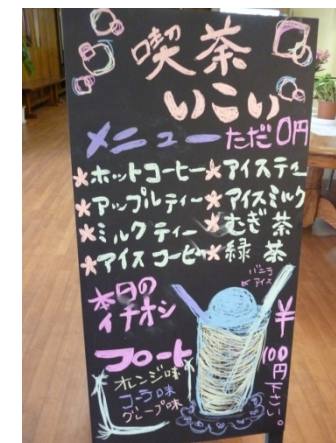 喫茶
いこい
メニュー ただ0円
*ホットコーヒー *アイスティー
*アップルティー *アイスミルク
*ミルクティー *むぎ茶
*アイスコーヒー *緑茶
バニラ
アイス
本日の
イチオシ
フロート
オレンジ味
コーラ味
グレープ味
¥100円下さい。